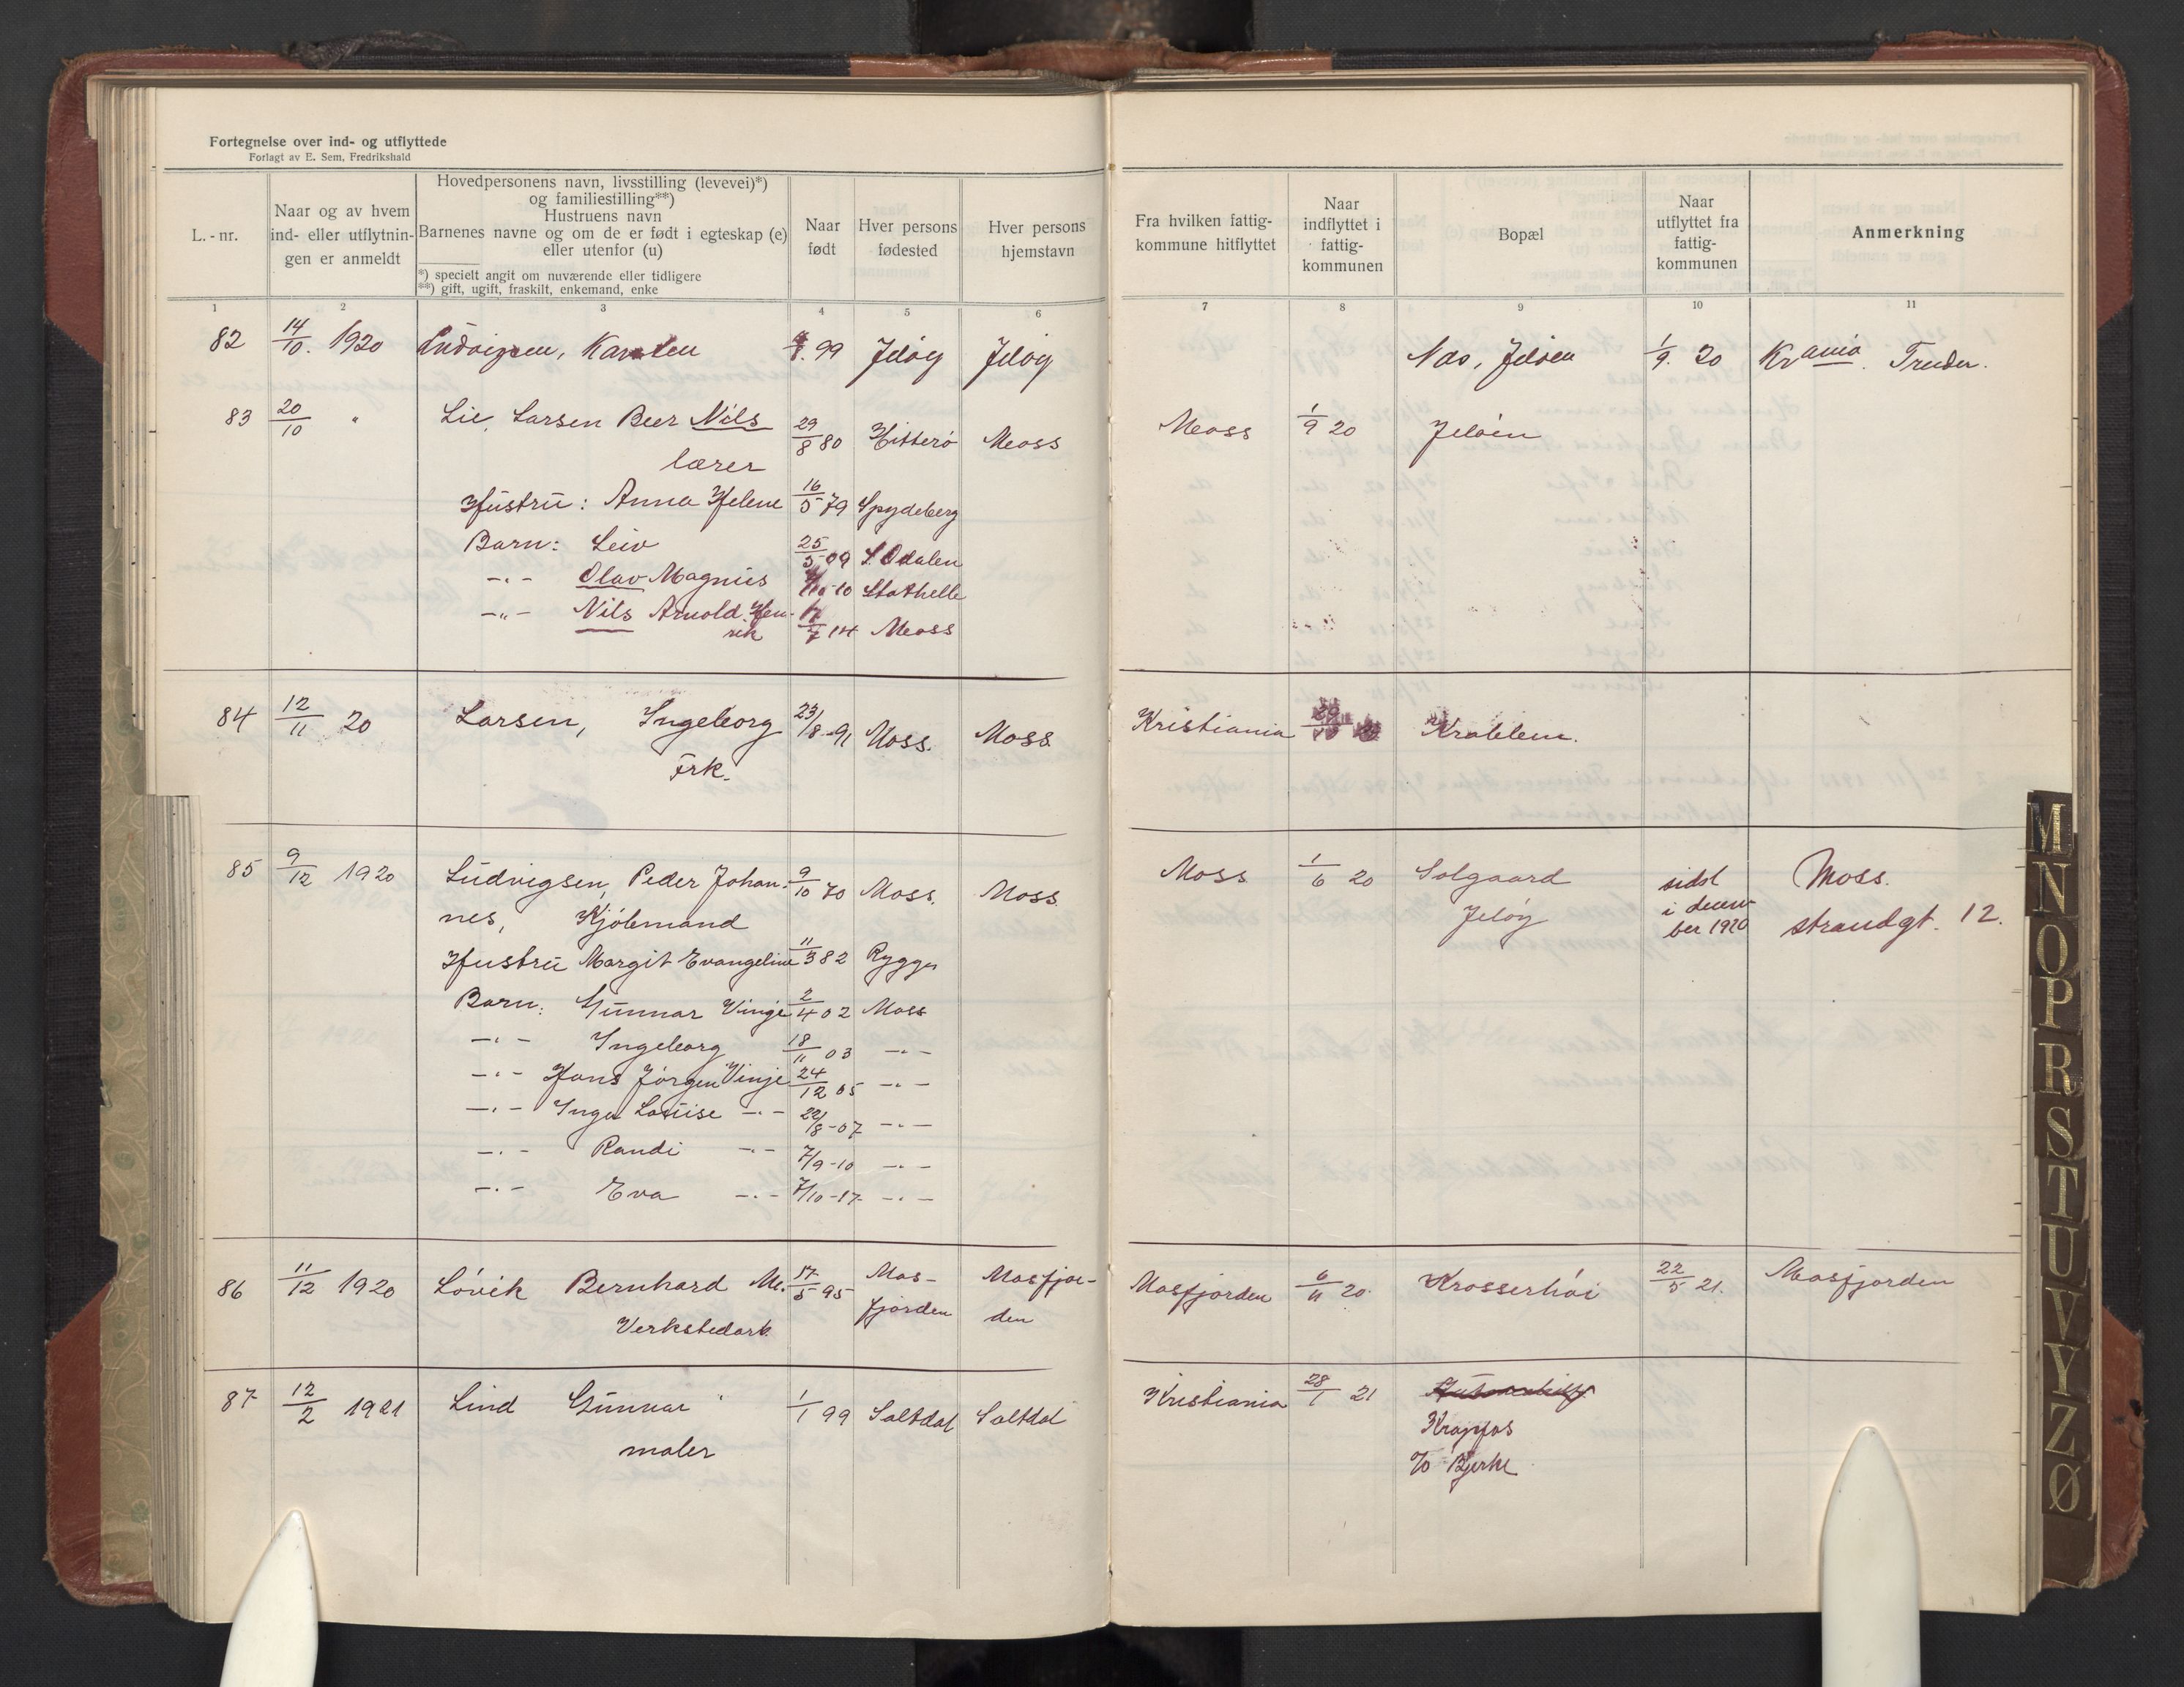 Fortegnelse over ind- og utflyttede
Forlagt av E. Sem, Fredrikshald
L. - nr.
Naar og av hvem
ind- eller utflytnin-
gen er anmeldt
Hovedpersonens navn, livsstilling (levevei)*)
og familiestilling**)
Hustruens navn
Barnenes navne og om de er født i egteskap (e)
eller utenfor (u)
*) specielt angit om nuværende eller tidligere
**) gift, ugift, fraskilt, enkemand, enke
Naar
født
Hver persons
fødested
Hver persons
hjemstavn
Fra hvilken fattig-
kommune hitflyttet
Naar
indflyttet i
fattig-
kommunen
Bopæl
Naar
utflyttet fra
fattig-
kommunen
Anmerkning
1 2 3 4 5 6 7 8 9 10 11
82 14/10. 1920 Ludvigsen, Karsten 99 Jeløy Jeløy Nes, Jeløen 1/9. 20 Krania.
83 20/10 " Lie, Larsen Peer Nils 29/8 80 Hitterö Moss Moss 1/9 20 Jelöen
lærer
Hustru: Anna Helene 16/5 79 Spydeberg
Barn: Leiv 25/5 09 S. Odalen
-"- Olav Magnus 10-10 Stathelle
-"- Nils Arnold Hen- 14 Moss
rik
84 12/11 20 Larsen, Ingeborg 23/8-91 Moss. Moss. Kristiania Krabbem.
Frk.
85 9/12 1920 Ludvigsen, Peder Johan- 9/10 70 Moss. Moss. Moss 1/6 20 Solgaard sidst Moss.
nes, Kjöbmand Jelöy i decem- strandgt. 12.
ber 1920
Hustru Margit Evangeline 11/3 82 Rygge
Barn: Gunnar Vinje 2/4 02 Moss
-"- Ingeborg 18/11 03 -"-
-"- Hans Jörgen Vinje 24/12 05 -"-
-"- Inga Louise -"- 22/8-07 -"-
-"- Randi -"- 7/9-10 -"-
-"- Eva -"- 7/10-17 -"-
86 11/12 1920 Lövik Bernhard M. 17/5 95 Mas- Masfjor- Masfjorden 6/11 20. Krosserhöi 22/5 21. Masfjorden
Verkstedarb. fjorden den
87 12/2 1921 Lind Gunnar 1/1 99 Saltdal Saltdal Kristiania 28/1 21
maler Krapfos
c/o Bjerke
M
N
O
P
R
S
T
U
V
Y
Z
Ø